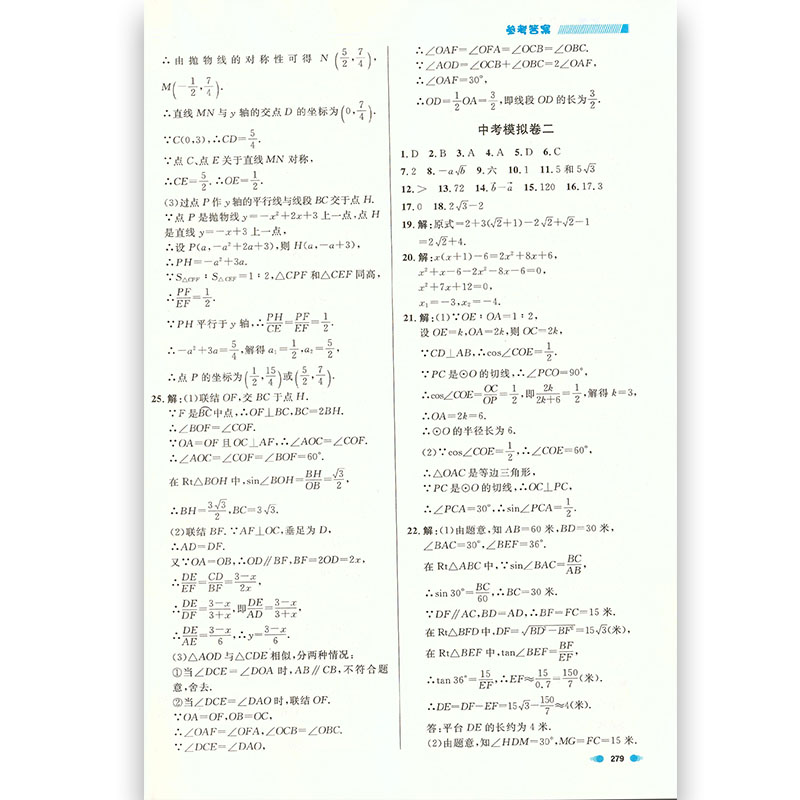 参考答案
∴由抛物线的对称性可得 N(5/2,7/4),
M(-1/2,7/4).
∴直线MN与y轴的交点D的坐标为(0,7/4).
∵C(0,3),∴CD=5/4.
∵点C、点E关于直线MN对称,
∴CE=5/2.∴OE=1/2.
(3)过点P作y轴的平行线与线段BC交于点H.
∵点P是抛物线y=-x²+2x+3上一点,点H
是直线y=-x+3上一点,
∴设P(a,-a²+2a+3),则H(a,-a+3),
∴PH=-a²+3a.
∵S△CPF∶S△CEF=1∶2,△CPF和△CEF同高,
∴PF/EF=1/2.
∵PH平行于y轴,∴PH/CE=PF/EF=1/2.
∴-a²+3a=5/4,解得a₁=1/2,a₂=5/2,
∴点P的坐标为(1/2,15/4)或(5/2,7/4).
25.解:(1)联结OF,交BC于点H.
∵F是BC中点,∴OF⊥BC,BC=2BH.
∴∠BOF=∠COF.
∵OA=OF且OC⊥AF,∴∠AOC=∠COF.
∴∠AOC=∠COF=∠BOF=60°.
在Rt△BOH中,sin∠BOH=BH/OB=√3/2,
∴BH=3√3/2,BC=3√3.
(2)联结BF.∵AF⊥OC,垂足为D,
∴AD=DF.
又∵OA=OB,∴OD∥BF,BF=2OD=2x.
∴DE/EF=CD/BF=3-x/2x.
∴DE/DF=3-x/3+x,即DE/AD=3-x/3+x.
∴DE/AE=3-x/6,∴y=3-x/6.
(3)△AOD与△CDE相似,分两种情况:
①当∠DCE=∠DOA时,AB∥CB,不符合题
意,舍去.
②当∠DCE=∠DAO时,联结OF.
∵OA=OF,OB=OC,
∴∠OAF=∠OFA,∠OCB=∠OBC.
∵∠DCE=∠DAO,
∴∠OAF=∠OFA=∠OCB=∠OBC.
∵∠AOD=∠OCB+∠OBC=2∠OAF,
∴∠OAF=30°,
∴OD=1/2OA=3/2,即线段OD的长为3/2.
中考模拟卷二
1.D 2.B 3.A 4.A 5.D 6.C
7.2 8.-a√b 9.六 10.1 11.5和5√3
12.> 13.72 14.b-a 15.120 16.17.3
17.0 18.2√3-2
19.解:原式=2+3(√2+1)-2√2+√2-1
=2√2+4.
20.解:x(x+1)-6=2x²+8x+6,
x²+x-6-2x²-8x-6=0,
x²+7x+12=0,
x₁=-3,x₂=-4.
21.解:(1)∵OE∶OA=1∶2,
设OE=k,OA=2k,则OC=2k,
∵CD⊥AB,∴cos∠COE=1/2.
∵PC是⊙O的切线,∴∠PCO=90°,
∴cos∠COE=OC/OP=1/2,即2k/2k+6=1/2,解得k=3,
∴OA=2k=6.
∴⊙O的半径长为6.
(2)∵cos∠COE=1/2,∴∠COE=60°,
∴△OAC是等边三角形,
∵PC是⊙O的切线,∴OC⊥PC,
∴∠PCA=30°,∴sin∠PCA=1/2.
22.解:(1)由题意,知AB=60米,BD=30米,
∠BAC=30°,∠BEF=36°.
在Rt△ABC中,∵sin∠BAC=BC/AB,
∴sin30°=BC/60,∴BC=30米.
∵DF∥AC,BD=AD,∴BF=FC=15米.
在Rt△BFD中,DF=√BD²-BF²=15√3(米),
在Rt△BEF中,tan∠BEF=BF/EF,
∴tan36°=15/EF,∴EF≈15/0.7=150/7(米).
∴DE=DF-EF=15√3-150/7≈4(米).
答:平台DE的长约为4米.
(2)由题意,知∠HDM=30°,MG=FC=15米.
279